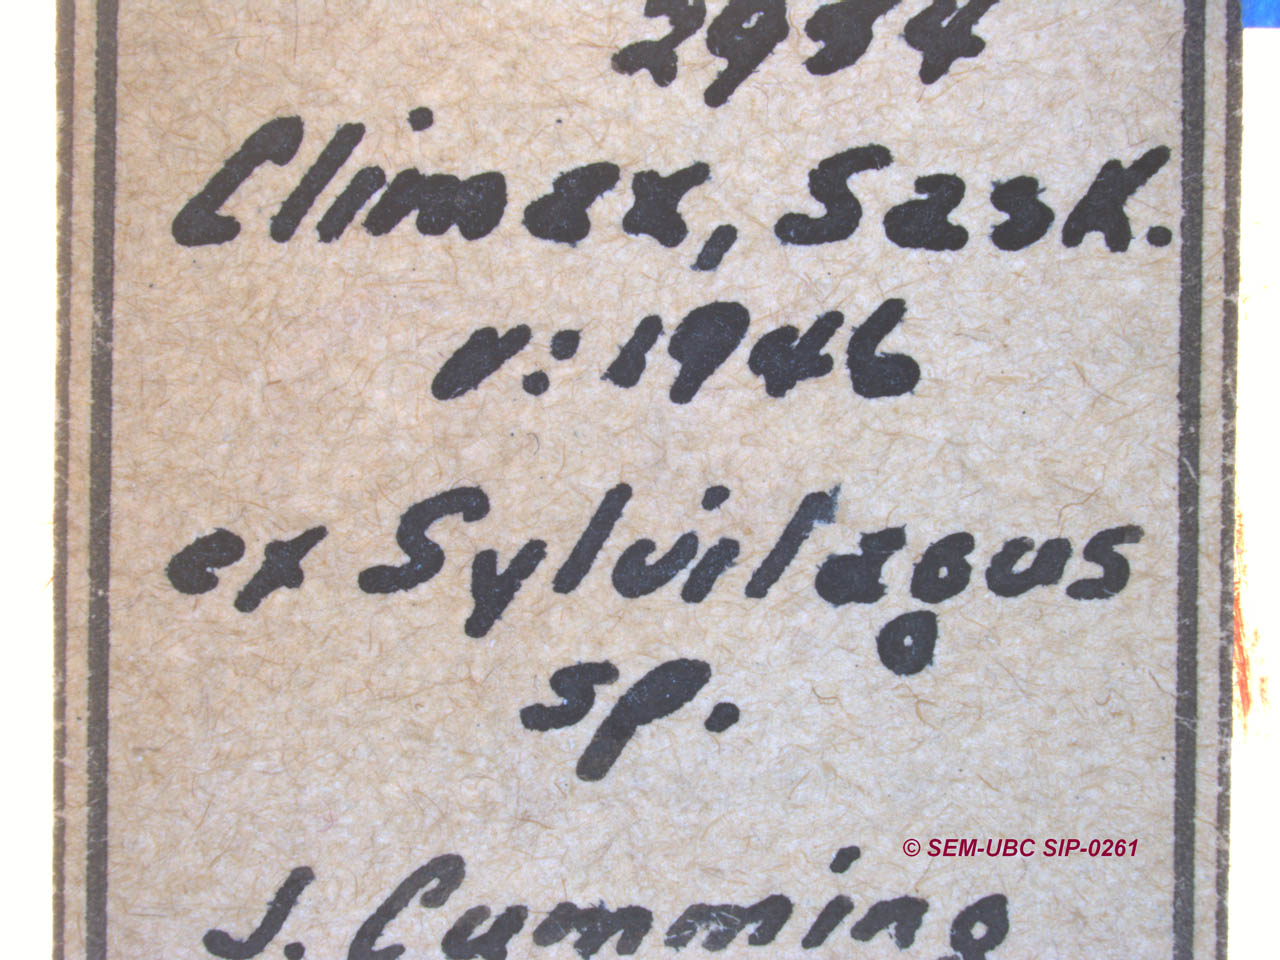 2954
Climax, Sask.
v: 1946
ex Sylvilagus
sp.
© SEM-UBC SIP-0261
J. Cumming